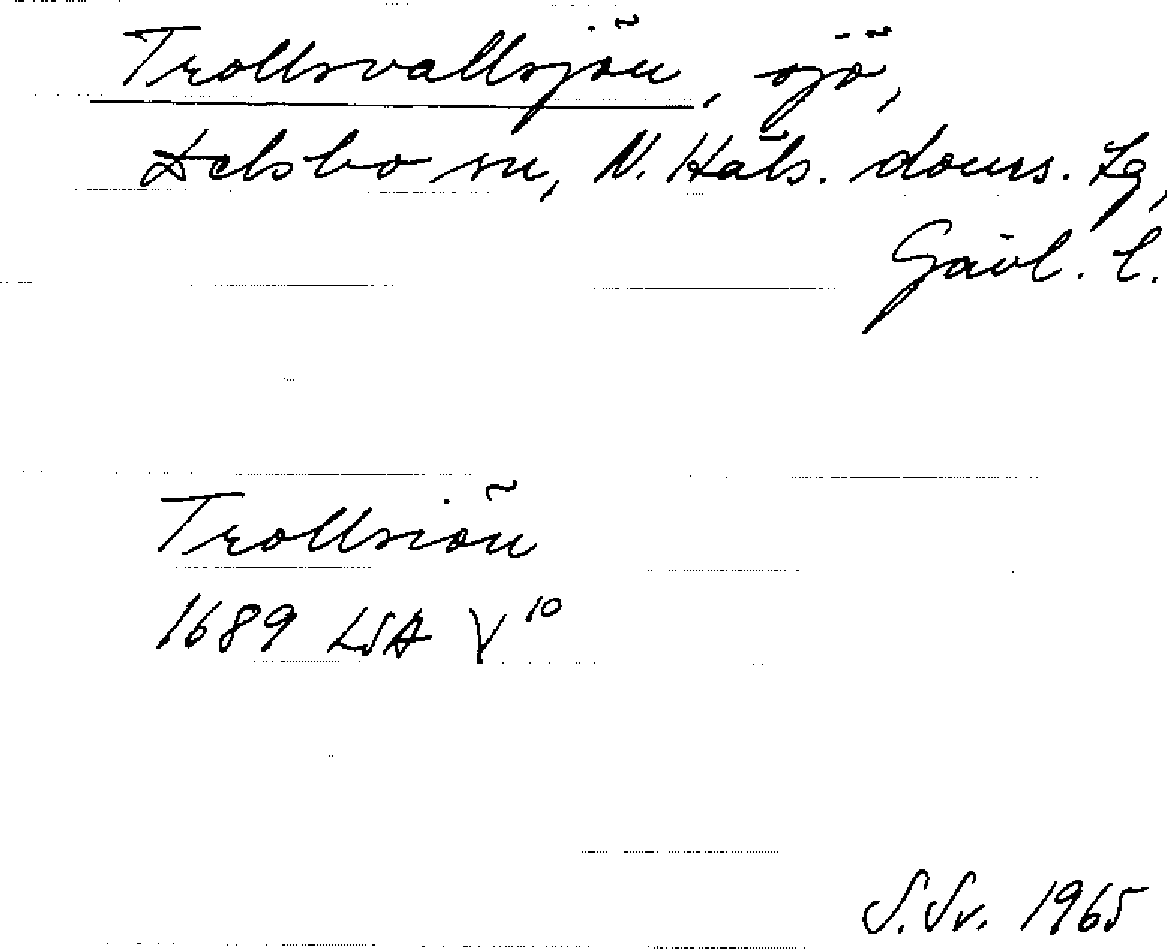 Trollsvallsjön, sjö,
Delsbo sn, N. Häls. doms. tg,
Gävl. l.
Trollsiön
1689 LSA V¹⁰
S.Sv. 1965